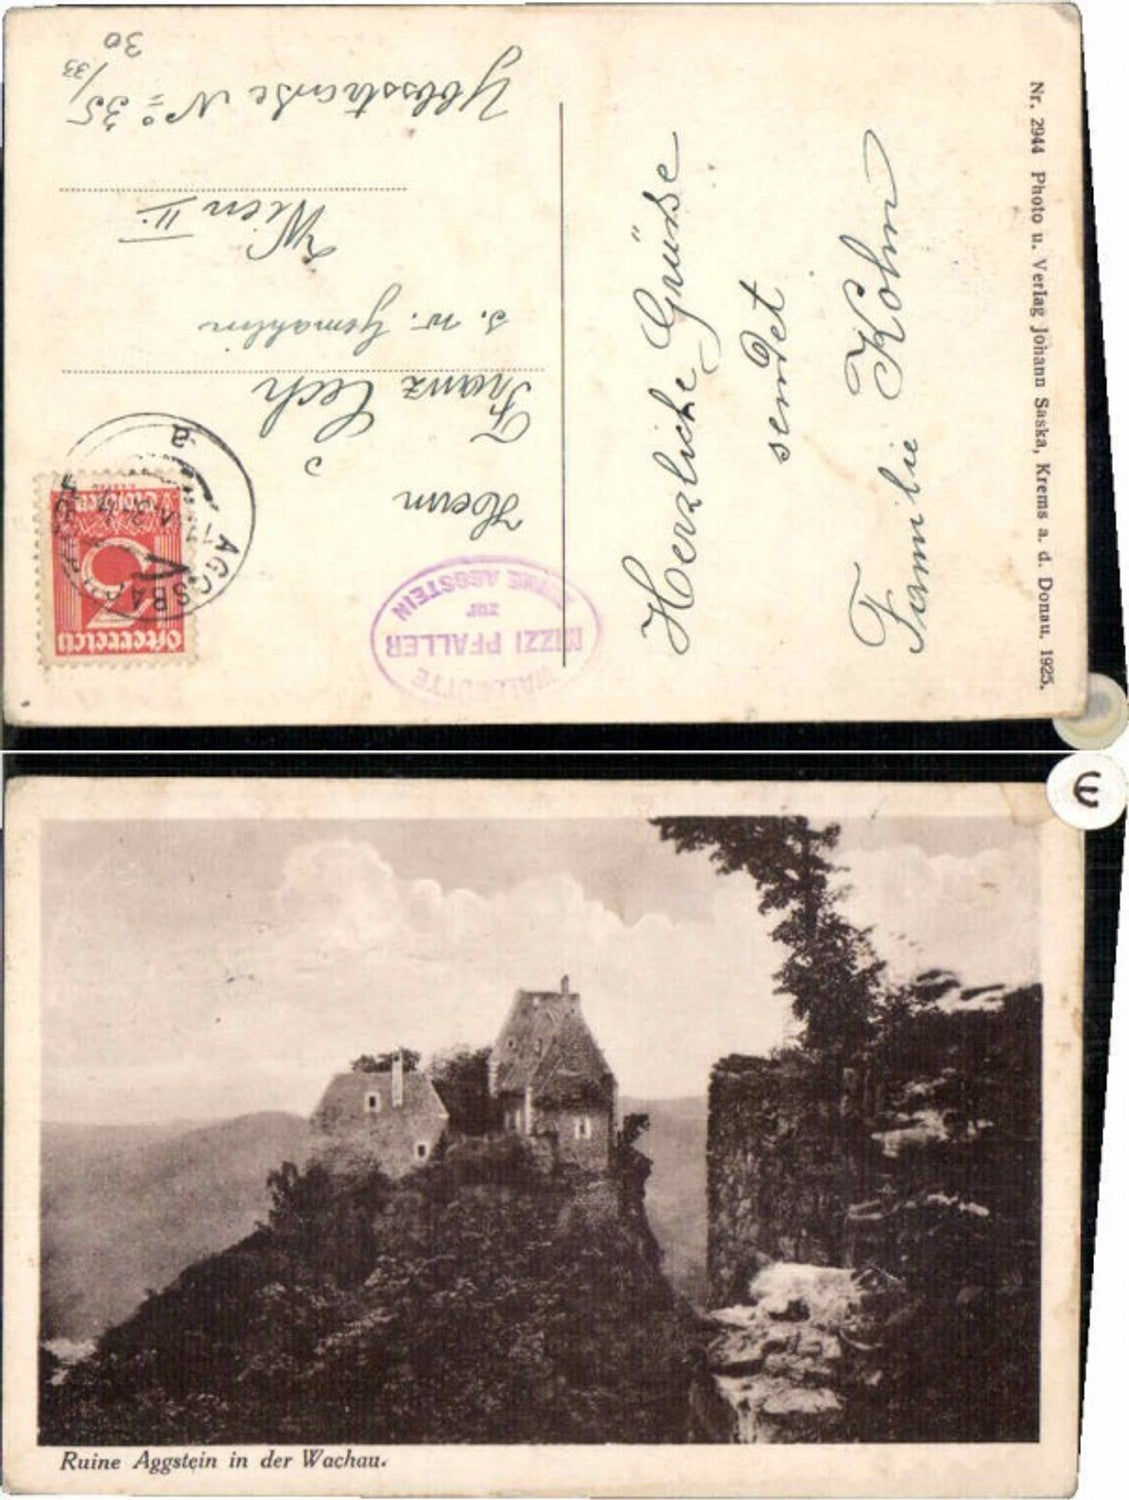 Nr. 2944 Photo u. Verlag Johann Saska, Krems a. d. Donau. 1925.
Herzliche Grüße
sendet
Familie Kohn
WALDHÜTTE
MIZZI PFALLER
ZUR
RUINE AGGSTEIN
Österreich
AGGSBACH
a
Herrn
Franz Lech
s. w. Gemahlin
Wien II.
Ybbsstraße No 35
/33
30
Ruine Aggstein in der Wachau.